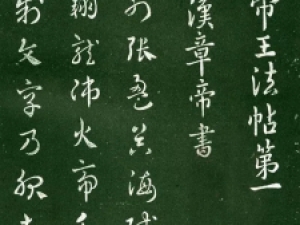 帝王法帖第一
漢章帝書
列張盈昃海鹹
翔龍師火帝鳥
制文字乃服衣